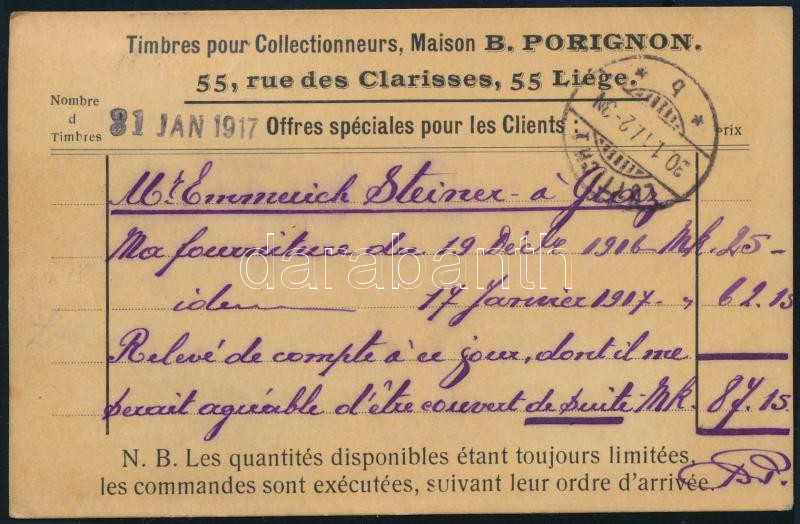 Timbres pour Collectionneurs, Maison B. PORIGNON.
55, rue des Clarisses, 55 Liége.
Nombre
d
Timbres
31 JAN 1917
Offres spéciales pour les Clients
prix
Mr. Emmerich Steiner - à Graz
Ma fourniture du 19 Decbr 1916 Mk. 25 -
idem 17 Janvier 1917 - „ 62.15
Relevé de compte à ce jour, dont il me
serait agréable d'être couvert de suite Mk. 87.15
N. B. Les quantités disponibles étant toujours limitées,
les commandes sont exécutées, suivant leur ordre d'arrivée.
B.P.
darabanth
* b *
30.1.17.2-3N